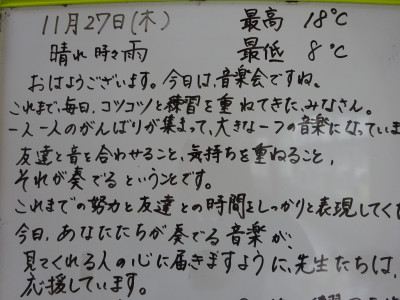 11月27日(木) 最高 18℃
晴れ 時々 雨 最低 8℃
おはようございます。今日は、音楽会ですね。
これまで、毎日、コツコツと練習を重ねてきた、みなさん。
一人一人のがんばりが集まって、大きな一つの音楽になっていま
友達と音を合わせること、気持ちを重ねること、
それが奏でるということです。
これまでの努力と友達との時間をしっかりと表現してくだ
今日、あなたたちが奏でる音楽が、
見てくれる人の心に届きますように、先生たちは、
応援しています。